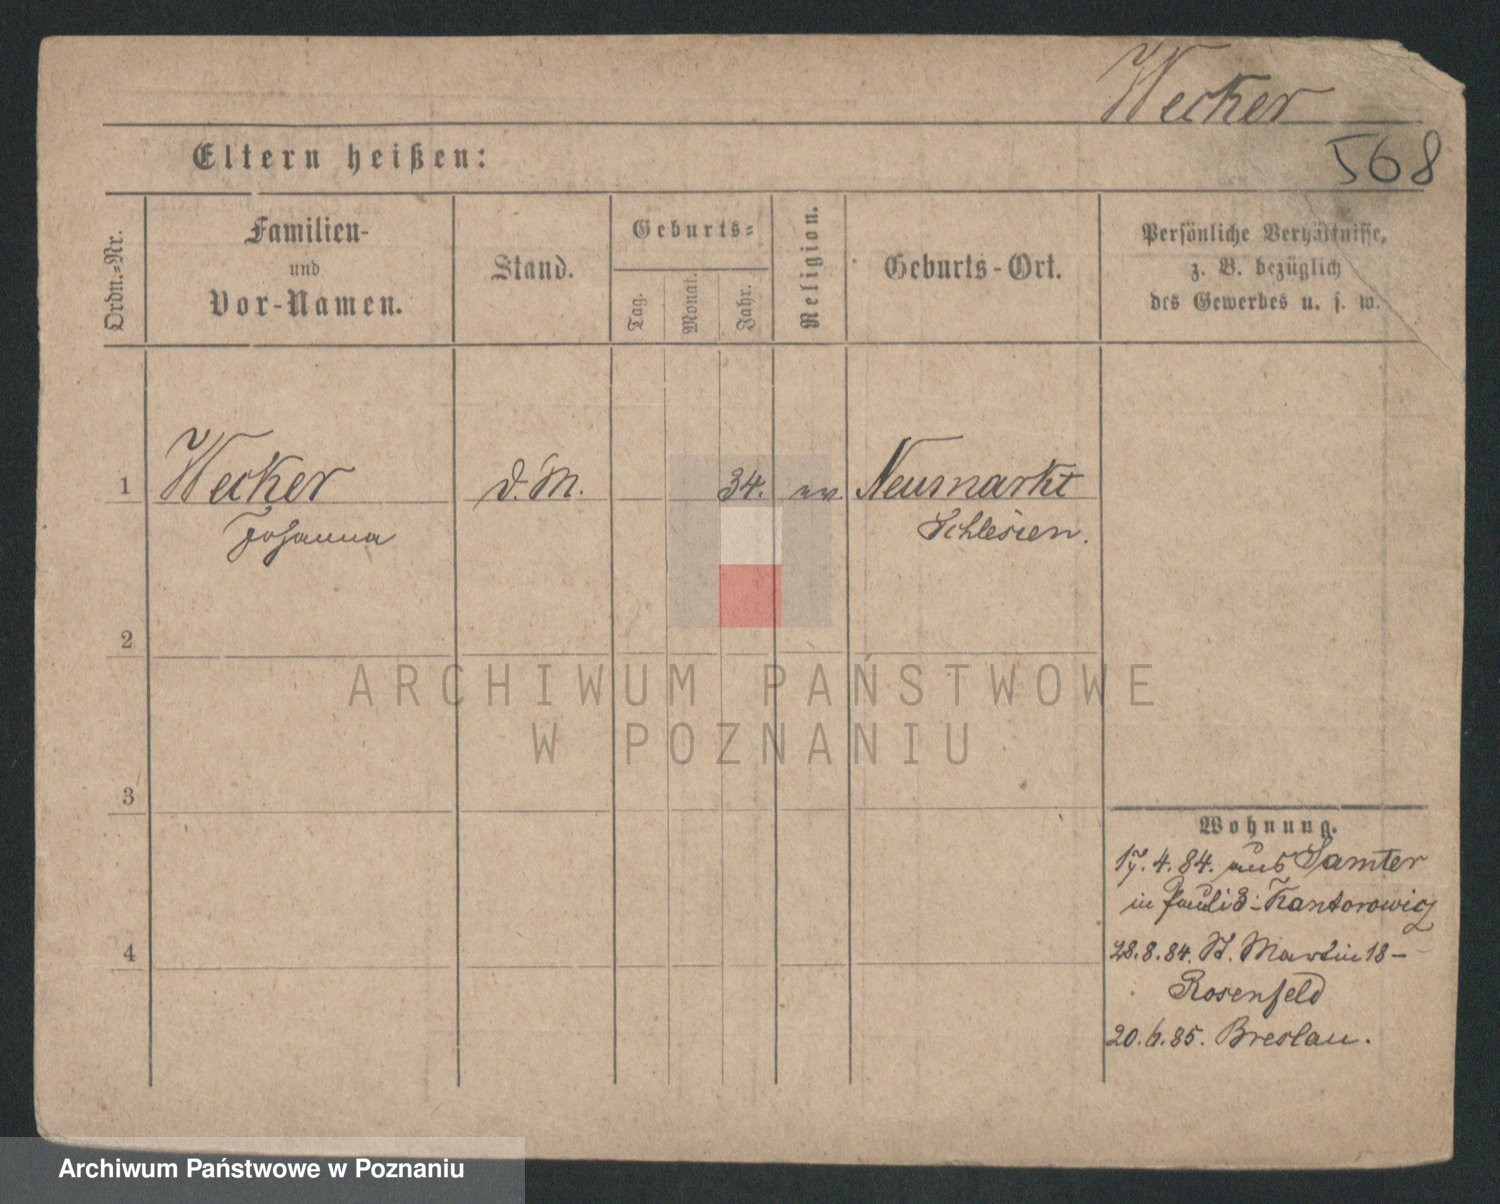 Wecker
568
Eltern heißen:
Ordn.=Nr.
Familien-
und
Vor-Namen.
Stand.
Geburts=
Tag.
Monat.
Jahr.
Religion.
Geburts-Ort.
Persönliche Verhältnisse,
z. B. bezüglich
des Gewerbes u. s. w.
1
Wecker
Johanna
d. M.
34.
ev
Neumarkt
Schlesien.
2
3
4
Wohnung.
17.4.84. aus Samter
in Pauli 3 - Kantorowicz
28.8.84. St. Martin 18 -
Rosenfeld
20.6.85. Breslau.
ARCHIWUM PAŃSTWOWE
W POZNANIU
Archiwum Państwowe w Poznaniu